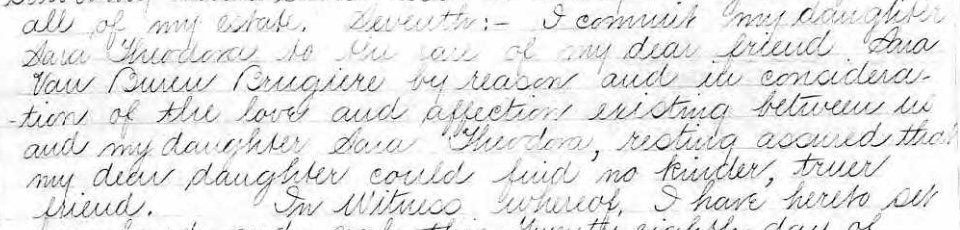 all of my estate. Seventh:- I commit my daughter
Sara Theodora to the care of my dear friend Sara
Van Buren Brugiere by reason and in considera-
-tion of the love and affection existing between us
and my daughter Sara Theodora, resting assured that
my dear daughter could find no kinder, truer
friend. In Witness whereof, I have hereto set
day of